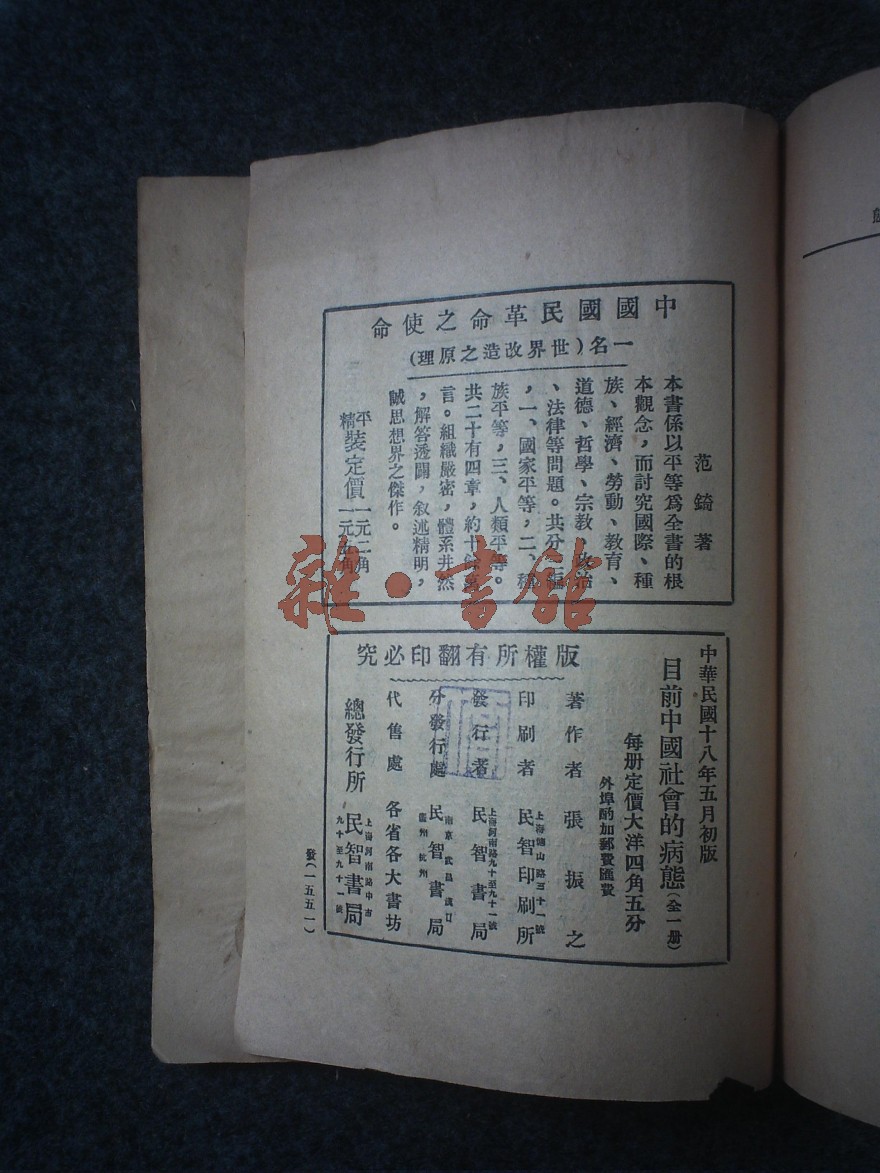 中國國民革命之使命
一名(世界改造之原理)
范錡著
本書係以平等爲全書的根
本觀念，而討究國際、種
族、經濟、勞動、教育、
道德、哲學、宗教、政治
、法律等問題。共分三編
，一、國家平等，二、種
族平等，三、人類平等。
共二十有四章，約十餘萬
言。組織嚴密，體系井然
，解答透闢，叙述精明，
誠思想界之傑作。
平裝定價一元二角
精裝定價一元五角
雜·書館
中華民國十八年五月初版
目前中國社會的病態(全一册)
每册定價大洋四角五分
外埠酌加郵費匯費
版權所有翻印必究
著作者 張振之
印刷者 民智印刷所
發行者 上海河南路九十至九十一號 民智書局
分發行處 南京 武昌 漢口 廣州 杭州 民智書局
代售處 各省各大書坊
總發行所 上海河南路中市九十至九十一號 民智書局
發(一五五一)